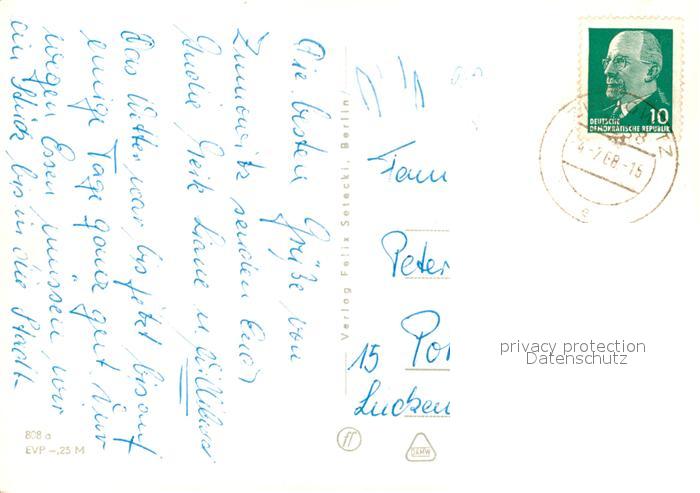 Die besten Grüße von
Zinnowitz senden Euch
Heike Liane u.
Das Wetter war bis jetzt bis auf
einige Tage ganz gut. Nur
wegen Essen müssen wir
ein Stück bis in die Stadt.
808 a
EVP -,25 M
Verlag Felix Setecki, Berlin
Fam
Peter
15 Pot
Lucken
ff
DAMW
10
DEUTSCHE
DEMOKRATISCHE REPUBLIK
privacy protection
Datenschutz